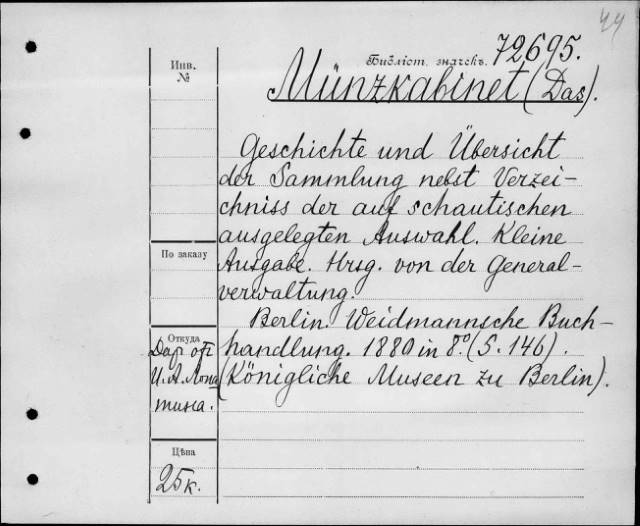 44
Библіот. значекъ. 72695.
Инв.
№
Münzkabinet (Das).
Geschichte und Übersicht
der Sammlung nebst Verzei-
chniss der auf schautischen
ausgelegten Auswahl. Kleine
По заказу
Ausgabe. Hrsg. von der General-
verwaltung.
Berlin. Weidmannsche Buch-
handlung. 1880 in 8° (S. 146).
(Königliche Museen zu Berlin).
Откуда
Дар от
И. А.
Цѣна
25 к.